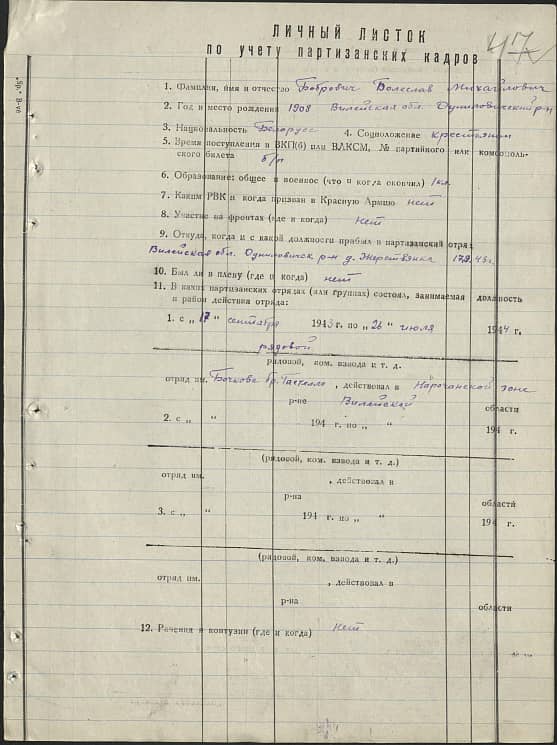 ЛИЧНЫЙ ЛИСТОК
по учету партизанских кадров
47
1. Фамилия, имя и отчество Бобрович Болеслав Михайлович
2. Год и место рождения 1908 Вилейская обл. Дуниловичский р-н
3. Национальность Белорус 4. Соцположение крестьянин
5. Время поступления в ВКП(б) или ВЛКСМ, № партийного или комсомоль-
ского билета б/п
6. Образование: общее и военное (что и когда окончил) 1 кл.
7. Каким РВК и когда призван в Красную Армию нет
8. Участие на фронтах (где и когда) нет
9. Откуда, когда и с какой должности прибыл в партизанский отряд
Вилейская обл. Дуниловичск р-н д. 17.9.43 г.
10. Был ли в плену (где и когда) нет
11. В каких партизанских отрядах (или группах) состоял, занимаемая должность
и район действия отряда:
1. с „ 17 “ сентября 1943 г. по „ 26 “ июля 1944 г.
рядовой
рядовой, ком. взвода и т. д.
отряд им. Бочкова бр. Гастелло, действовал в Нарочанской зоне
р-не Вилейской области
2. с „ “ 194 г. по „ “ 194 г.
(рядовой, ком. взвода и т. д.)
отряд им. , действовал в
р-на области
3. с „ “ 194 г. по „ “ 194 г.
(рядовой, ком. взвода и т. д.)
отряд им. , действовал в
р-на области
12. Ранения и контузии (где и когда) нет